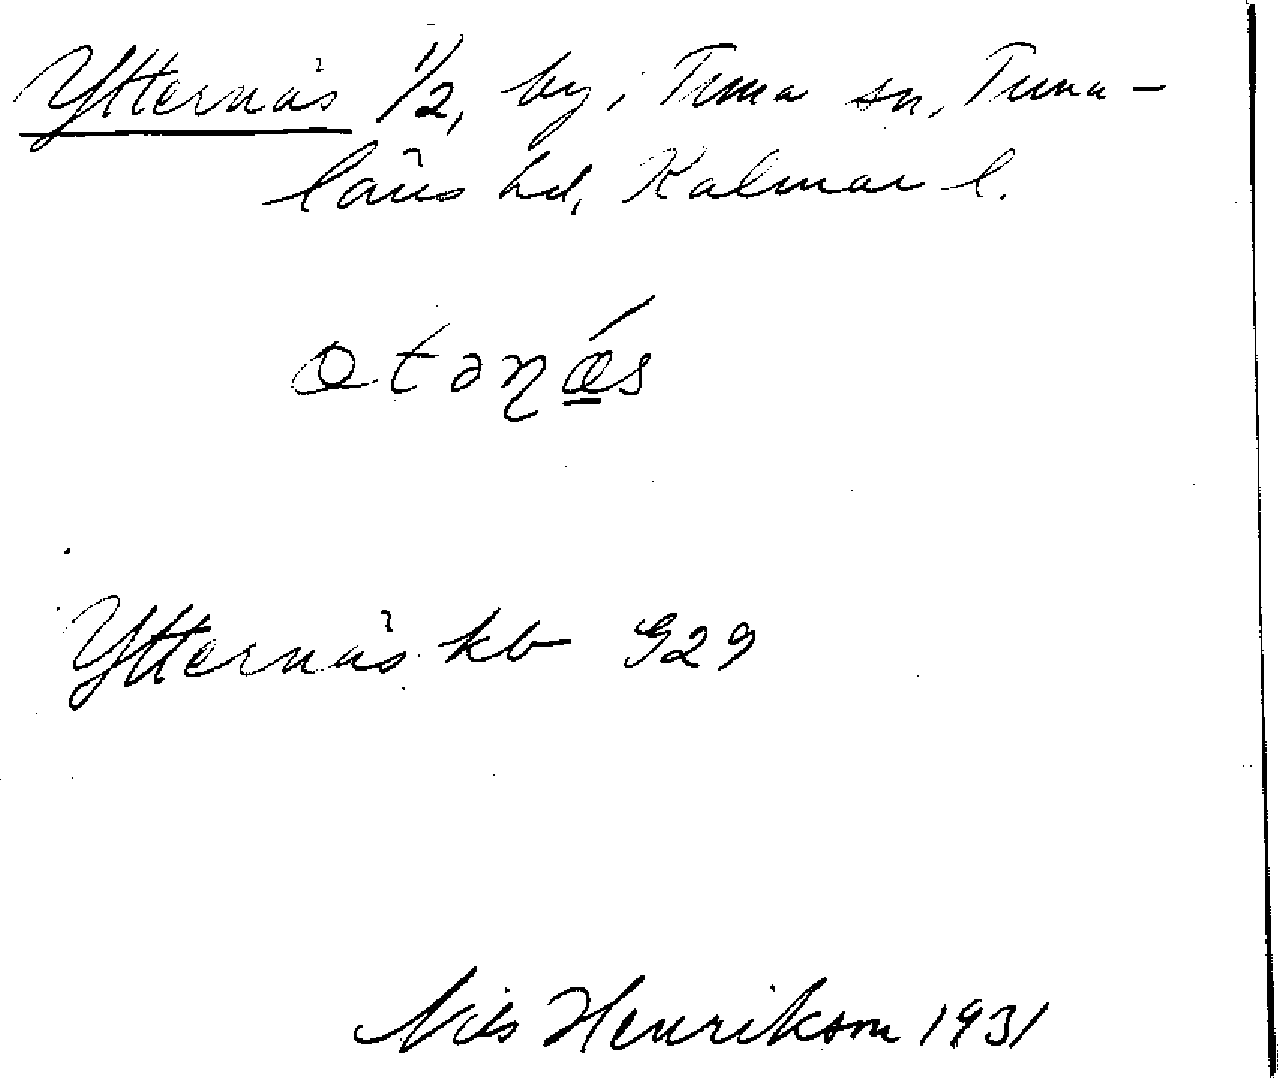 Ytternäs 1/2, by, Tuna sn, Tuna-
läns hd, Kalmar l.
Ytternäs kb 929
Nils Henrikson 1931